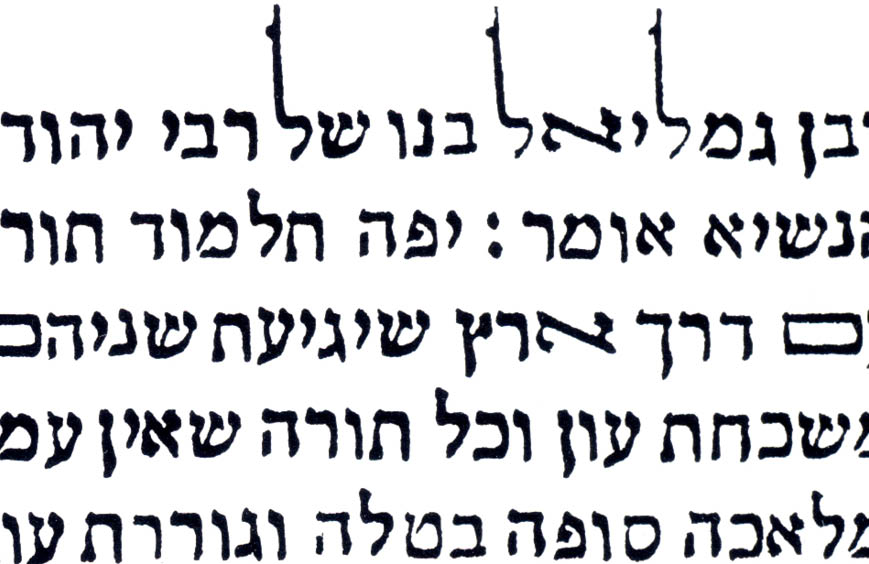 רבן גמליאל בנו של רבי יהוד
הנשיא אומר: יפה תלמוד תור
עם דרך ארץ שיגיעת שניהם
משכחת עון וכל תורה שאין עמ
מלאכה סופה בטלה וגוררת עו